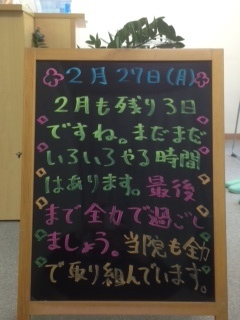 2月27日(月)
2月も残り3日
ですね。まだまだ
いろいろやる時間
はあります。最後
まで全力で過ごし
ましょう。当院も全力
で取り組んでいます。